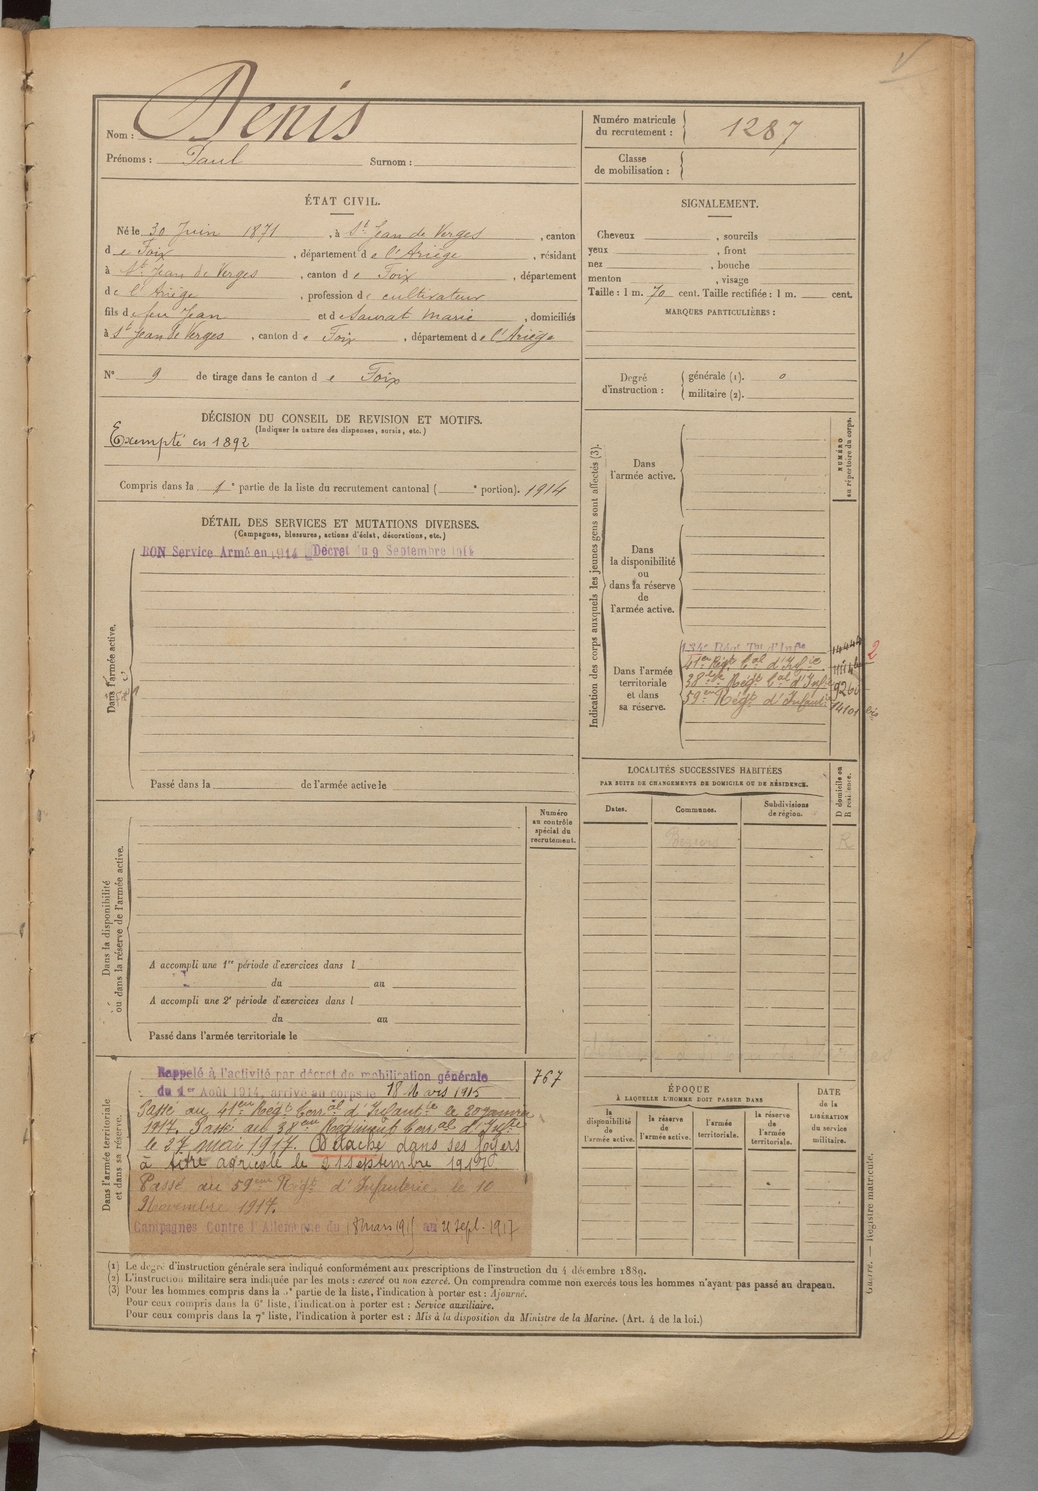 Nom : Denis
Prénoms : Paul Surnom :
Numéro matricule du recrutement : 1287
Classe de mobilisation :
ÉTAT CIVIL.
Né le 30 Juin 1871, à St Jean de Verges, canton
de Foix, département de l'Ariège, résidant
à St Jean de Verges, canton de Foix, département
de l'Ariège, profession de cultivateur
fils de feu Jean et de Saurat Marie, domiciliés
à St Jean de Verges, canton de Foix, département de l'Ariège
N° 9 de tirage dans le canton de Foix
SIGNALEMENT.
Cheveux , sourcils
yeux , front
nez , bouche
menton , visage
Taille : 1 m. 70 cent. Taille rectifiée : 1 m. cent.
MARQUES PARTICULIÈRES :
Degré d'instruction : générale (1). 0
militaire (2).
DÉCISION DU CONSEIL DE REVISION ET MOTIFS.
(Indiquer la nature des dispenses, sursis, etc.)
Exempté en 1892
Compris dans la 1e partie de la liste du recrutement cantonal ( e portion). 1914
DÉTAIL DES SERVICES ET MUTATIONS DIVERSES.
(Campagnes, blessures, actions d'éclat, décorations, etc.)
BON Service Armé en 1914 Décret du 9 Septembre 1914
Dans l'armée active.
Passé dans la de l'armée active le
Indication des corps auxquels les jeunes gens sont affectés (3).
NUMÉRO au répertoire du corps.
Dans l'armée active.
Dans la disponibilité ou dans la réserve de l'armée active.
Dans l'armée territoriale et dans sa réserve.
134e Régt Tal d'Infie
41em Régt Cal d'Infie
38em Régt Cal d'Infie 926
59em Régt d'Infanterie 14101 bis
2
LOCALITÉS SUCCESSIVES HABITÉES
PAR SUITE DE CHANGEMENTS DE DOMICILE OU DE RÉSIDENCE.
Dates. Communes. Subdivisions de région. D domicile ou R résidence.
R
Dans la disponibilité ou dans la réserve de l'armée active.
Numéro au contrôle spécial du recrutement.
A accompli une 1re période d'exercices dans l
du au
A accompli une 2e période d'exercices dans l
du au
Passé dans l'armée territoriale le
Dans l'armée territoriale et dans sa réserve.
Rappelé à l'activité par décret de mobilisation générale
du 1er Août 1914, arrivé au corps le 18 Mars 1915
767
Passé au 41em Régt Conal d'Infantie le 20 janvier
1917. Passé au 38em Régiment Conal d'Infie
le 27 mai 1917. Détaché dans ses foyers
à titre agricole le 21 septembre 1917
Passé au 59em Régt d'Infanterie le 10
Novembre 1917.
Campagnes Contre l'Allemagne du 18 mars 1915 au 21 Sept. 1917
ÉPOQUE
À LAQUELLE L'HOMME DOIT PASSER DANS
la disponibilité de l'armée active. la réserve de l'armée active. l'armée territoriale. la réserve de l'armée territoriale.
DATE de la LIBÉRATION du service militaire.
(1) Le degré d'instruction générale sera indiqué conformément aux prescriptions de l'instruction du 4 décembre 1889.
(2) L'instruction militaire sera indiquée par les mots : exercé ou non exercé. On comprendra comme non exercés tous les hommes n'ayant pas passé au drapeau.
(3) Pour les hommes compris dans la 5e partie de la liste, l'indication à porter est : Ajourné.
Pour ceux compris dans la 6e liste, l'indication à porter est : Service auxiliaire.
Pour ceux compris dans la 7e liste, l'indication à porter est : Mis à la disposition du Ministre de la Marine. (Art. 4 de la loi.)
Guerre. — Registre matricule.